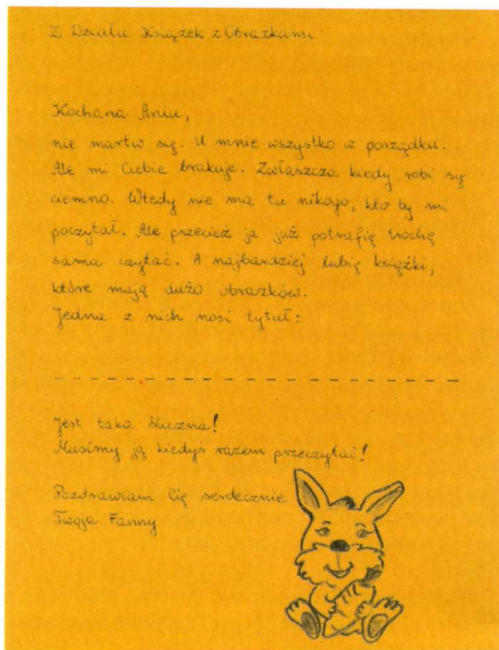 Z Działu Książek z Obrazkami
Kochana Aniu,
nie martw się. U mnie wszystko w porządku.
Ale mi Ciebie brakuje. Zwłaszcza kiedy robi się
ciemno. Wtedy nie ma tu nikogo, kto by mi
poczytał. Ale przecież ja już potrafię trochę
sama czytać. A najbardziej lubię książki,
które mają dużo obrazków.
Jedna z nich nosi tytuł:
Jest taka śliczna!
Musimy ją kiedyś razem przeczytać!
Pozdrawiam Cię serdecznie
Twoja Fanny